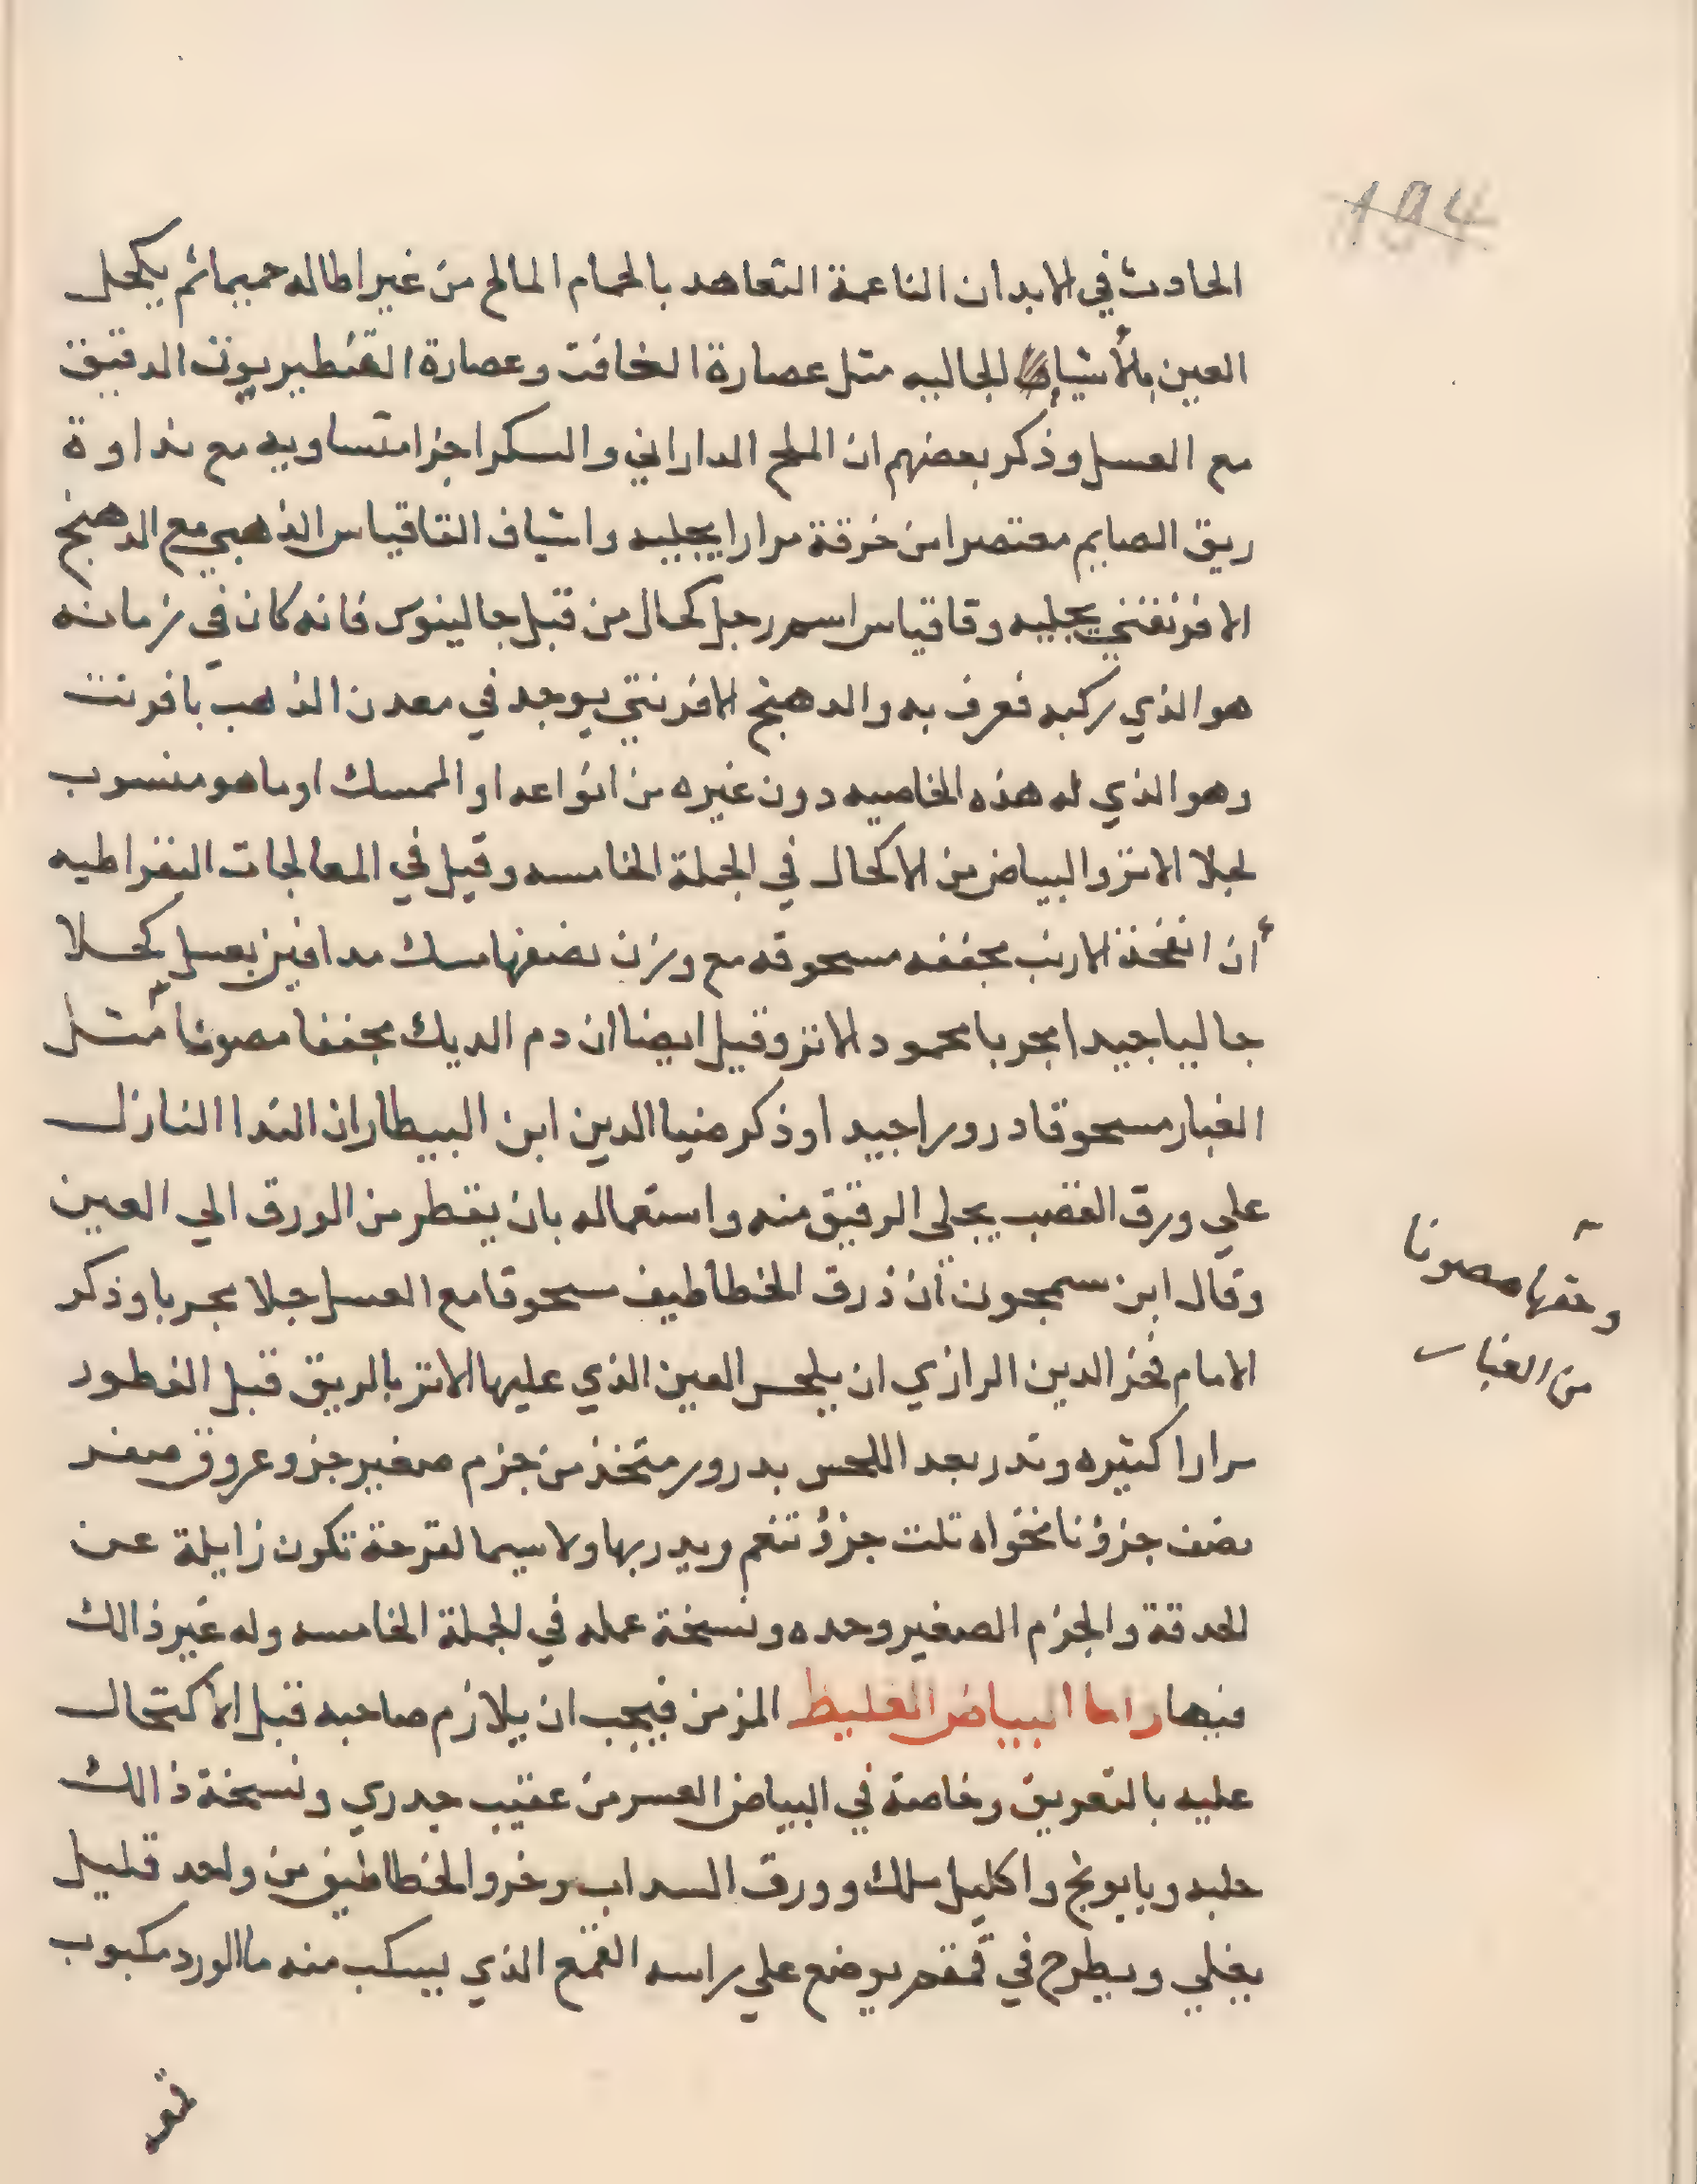 194
الحادث في الابدان الناعمة التعاهد بالحمام المالح من غير اطاله حميما ثم يكحل
العين بالأشيا الجاليه مثل عصارة الغافت وعصارة القنطيريون الدقيق
مع العسل وذكر بعضهم ان الملح الداراني والسكر اجزا متساويه مع نداوة
ريق الصايم معتصرا من خرقة مرارا يجليه واشياف القاقياس الذهبي مع الدهنج
الافرنفتي يجليه وقاقياس اسم رجل كحال من قبل جالينوس فانه كان في زمانه
هو الذي ركبه فعرف به والدهنج الافرنتي يوجد في معدن الذهب بافرنت
وهو الذي له هذه الخاصيه دون غيره من انواعه او الممسك او ما هو منسوب
لجلا الاثر والبياض من الاكحال في الجملة الخامسه وقيل في المعالجات البقراطيه
أن انفخة الارنب مجففه مسحوقه مع وزن نصفها مسك مدافين بعسل كحلا
جاليا جيدا مجربا محمود الاثر وقيل ايضا ان دم الديك مجففا مصونا مثل
الغبار مسحوقا درورا جيدا وذكر ضيا الدين ابن البيطار ان الندا النازل
علي ورق القصب يجلى الرقيق منه واستعماله بان يقطر من الورق الي العين
وقال ابن سمجون أن ذرق الخطاطيف مسحوقا مع العسل جلا مجربا وذكر
الامام فخر الدين الرازي ان يلحس العين الذي عليها الاثر بالريق قبل الفطور
مرارا كثيره وتدر بعد اللحس بدرور متخذ من جزم صغير جزو عروق صفر
نصف جزؤ نانخواه تلت جزؤ تنعم ويدر بها ولا سيما لقرحة تكون زايلة عن
الحدقة والجزم الصغير وحده ونسخة عمله في الجملة الخامسه وله غير ذالك
فيها واما البياض الغليظ المزمن فيجب ان يلازم صاحبه قبل الاكتحال
عليه بالتعريق وخاصة في البياض العسر من عقيب جدري ونسخة ذالك
حلبه وبابونج واكليل ملك وورق السداب وخرو الخطاطيف من واحد قليل
يغلي ويطرح في قمقم يوضع علي راسه القمع الذي يسكب منه ما الورد مكبوب
وحقها مصونا
من الغبار